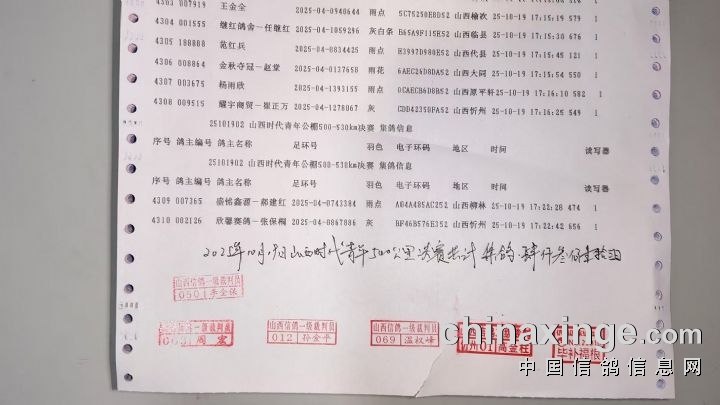 4303 007919 王金全 2025-04-0940644 雨点 5C75250E8D52 山西榆次 25-10-19 17:15:19 579 1
4304 001555 继红鸽舍－任继红 2025-04-1059296 灰白条 B65A9F115E52 山西临县 25-10-19 17:15:30 676 1
4305 188888 范红兵 2025-04-0834425 雨点 E3997D980E52 山西代县 25-10-19 17:15:45 121 1
4306 008864 金秋夺冠－赵堂 2025-04-0137658 雨花 6AEC26D8DA52 山西大同 25-10-19 17:15:54 550 1
4307 003675 杨雨欣 2025-04-1393155 雨点 0CAECB6D8B52 山西原平轩 25-10-19 17:16:10 582 1
4308 009515 耀宇商贸－崔正万 2025-04-1278067 灰 CDD42350FA52 山西忻州 25-10-19 17:16:25 549 1
25101902 山西时代青年公棚500-530km决赛 集鸽信息
序号 鸽主编号 鸽主名称 足环号 羽色 电子环码 地区 时间 读写器
25101902 山西时代青年公棚500-530km决赛 集鸽信息
序号 鸽主编号 鸽主名称 足环号 羽色 电子环码 地区 时间 读写器
4309 007365 蓓铭鑫源－郝建红 2025-04-0743384 雨点 A04A485AC252 山西柳林 25-10-19 17:22:28 474 1
4310 002126 欣馨赛鸽－张保桐 2025-04-0867886 灰 BF46B576E352 山西忻州 25-10-19 17:22:42 656 1
2025年10月19日山西时代青年500公里决赛共计集鸽肆仟叁佰壹拾羽
山西信鸽一级裁判员
0501李全保
信鸽一级裁判员
周宏
山西信鸽一级裁判员
012 孙金平
山西信鸽一级裁判员
069 温权峰
01高金柱
毕补福根
chinaxinge.com
中国信鸽信息网